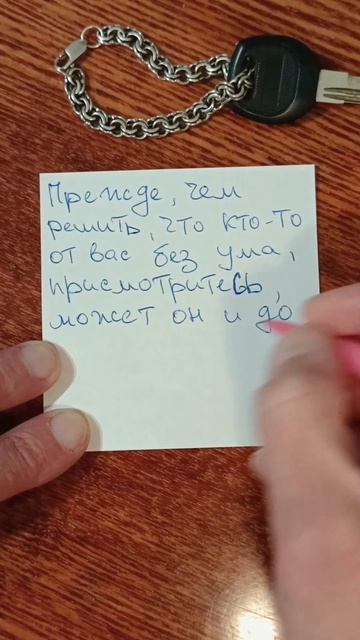 Прежде, чем
решить, что кто-то
от вас без ума,
присмотритесь,
может он и до